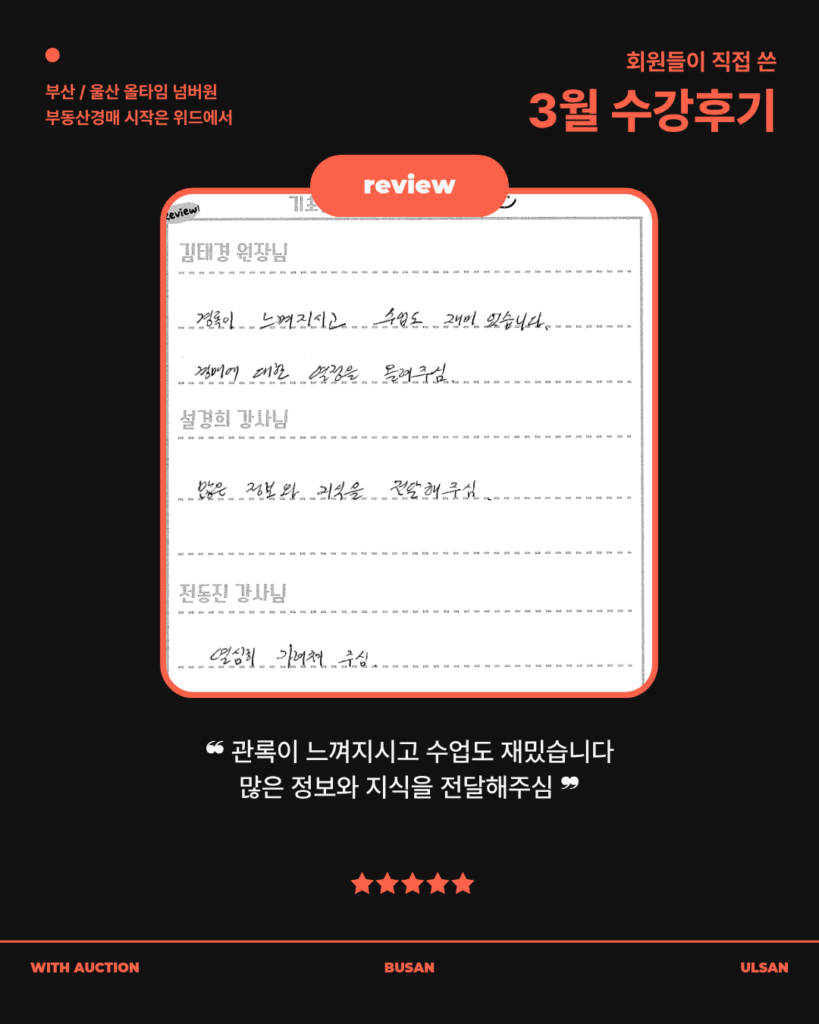 부산 / 울산 올타임 넘버원
부동산경매 시작은 위드에서
회원들이 직접 쓴
3월 수강후기
review
review!
기초
김태경 원장님
경륜이 느껴지시고 수업도 재미 있습니다.
경매에 대한 열정을 돌려주심.
설경희 강사님
많은 정보와 지식을 전달해주심.
전동진 강사님
열심히 가르쳐 주심.
❝ 관록이 느껴지시고 수업도 재밌습니다
많은 정보와 지식을 전달해주심 ❞
★★★★★
WITH AUCTION
BUSAN
ULSAN